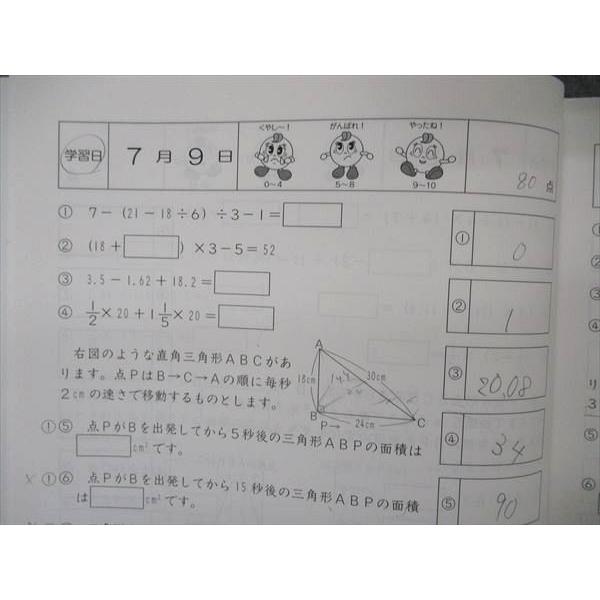 くやし〜！ がんばれ！ やったね！
学習日 7月9日
0〜4 5〜8 9〜10 80点
① 7－(21－18÷6)÷3－1＝
② (18＋ )×3－5＝52
③ 3.5－1.62＋18.2＝
④ 1/2×20＋1 1/5×20＝
右図のような直角三角形ＡＢＣがあ
ります。点ＰはＢ→Ｃ→Ａの順に毎秒
２cmの速さで移動するものとします。
A
18cm 30cm
14.4
B
P→ 24cm C
①⑤ 点ＰがＢを出発してから５秒後の三角形ＡＢＰの面積は
cm²です。
×①⑥ 点ＰがＢを出発してから15秒後の三角形ＡＢＰの面積
は cm²です。
① 0
② 1
③ 20.08
④ 34
⑤ 90
①
②
③
④
り
3
⑤
⑥